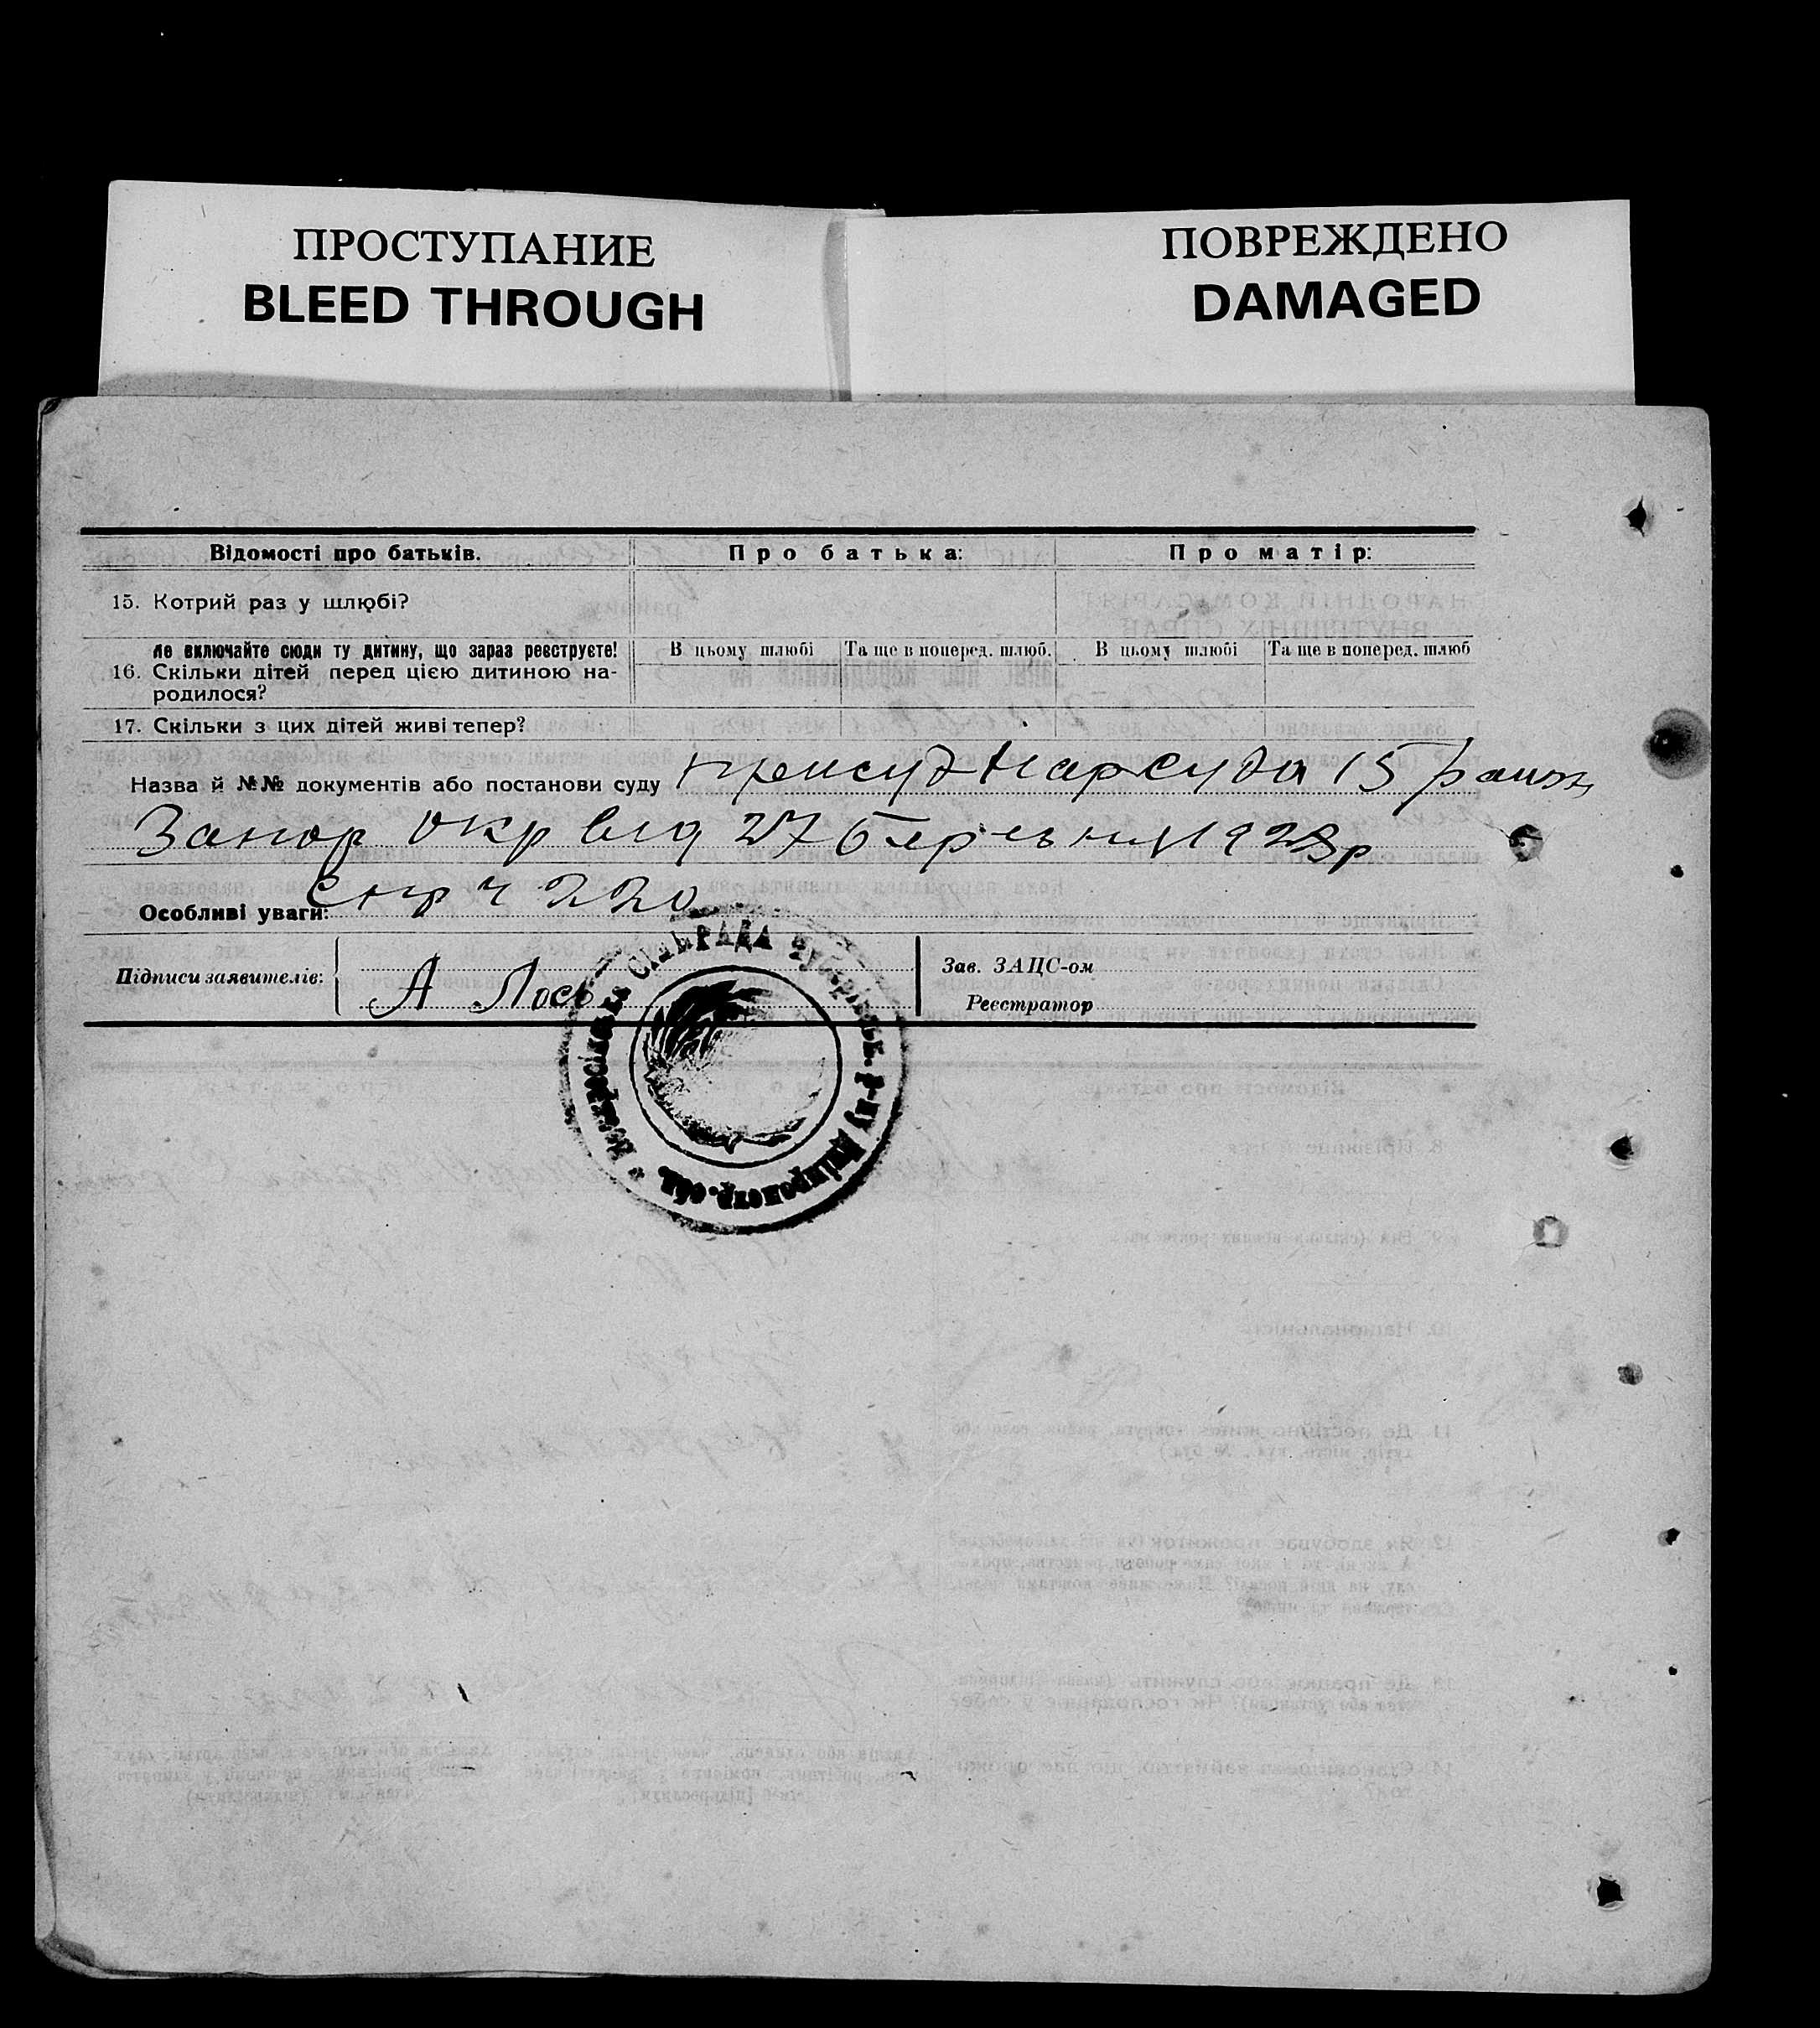 ПРОСТУПАНИЕ
BLEED THROUGH
ПОВРЕЖДЕНО
DAMAGED
Відомості про батьків. Про батька: Про матір:
15. Котрий раз у шлюбі?
не включайте сюди ту дитину, що зараз реєструєте! В цьому шлюбі Та ще в поперед. шлюб. В цьому шлюбі Та ще в поперед. шлюб
16. Скільки дітей перед цією дитиною на-
родилося?
17. Скільки з цих дітей живі тепер?
Назва й №№ документів або постанови суду присуд Нарсуда 15 район
Запор Окр від 27 березня 1928р
Особливі уваги: спр ч 220
Підписи заявителів: А Лось
Зав. ЗАЦС-ом
Реєстратор
СІЛЬРАДА Чубарівськ. р-ну Дніпропетр. обл.